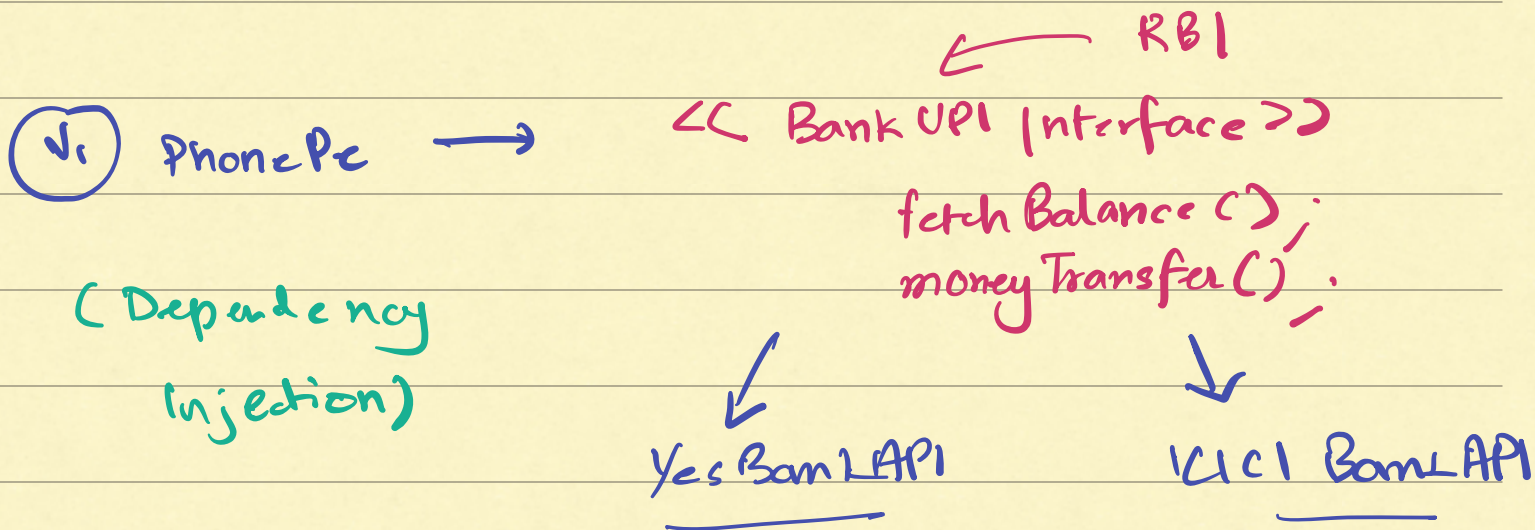 RBI
V1 PhonePe → << Bank UPI Interface >>
fetch Balance ();
money Transfer();
(Dependency
Injection)
Yes Bank API ICICI Bank API